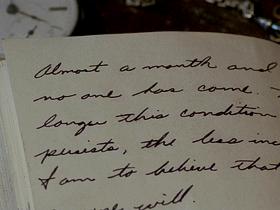 Almost a month and
no one has come. -
longer this condition
persists, the less inc
I am to believe that
will.